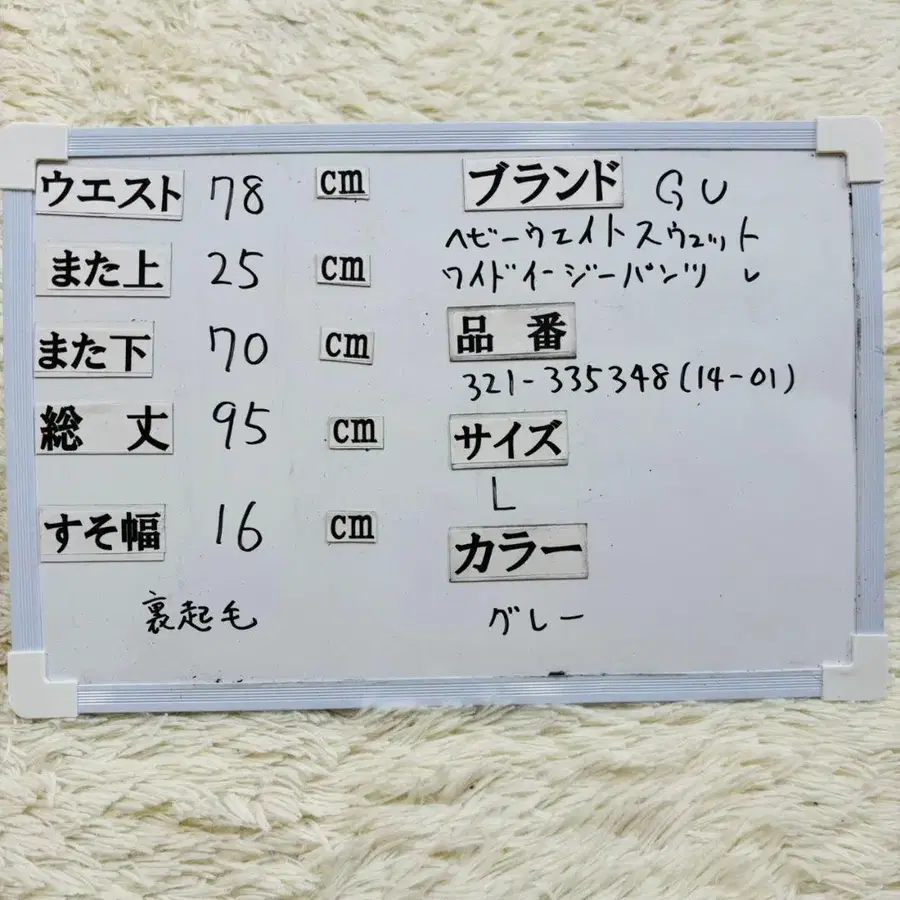 ウエスト 78 cm
また上 25 cm
また下 70 cm
総丈 95 cm
すそ幅 16 cm
裏起毛
ブランド GU
ヘビーウエイトスウェット
ワイドイージーパンツ レ
品番
321-335348(14-01)
サイズ
L
カラー
グレー